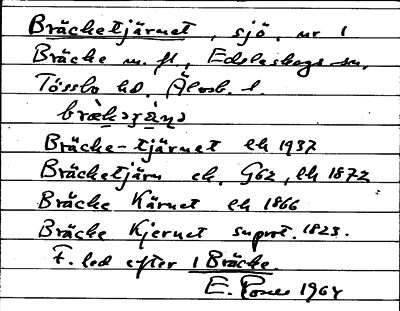 Bräcketjärnet, sjö, nr 1
Bräcke m. fl, Edsleskogs sn,
Tössbo hd. Älvsb. l.
Bräcke-tjärnet ek 1937
Bräcketjärn ek. G62, ek 1872
Bräcke Kärnet ek 1866
Bräcke Kjernet suprot. 1823.
F. led efter 1 Bräcke.
E. 1964